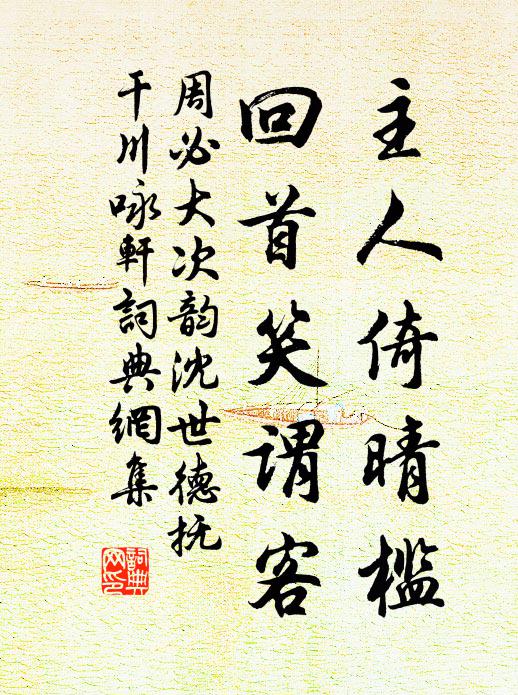 主人倚晴槛
回首笑谓客
周必大次韵沈世德抚
干川咏軒詞典網集
詞典
网印